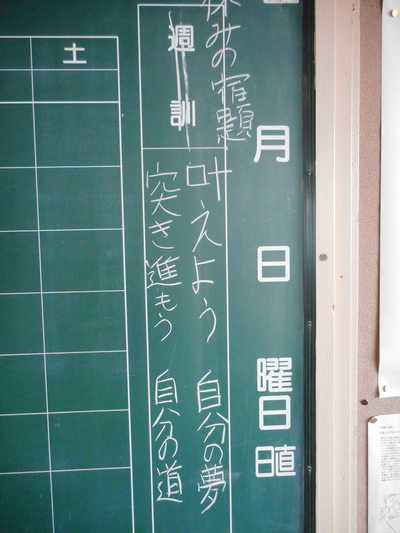 月 日 曜日
日直
休みの宿題
週訓
叶えよう 自分の夢
突き進もう 自分の道
土